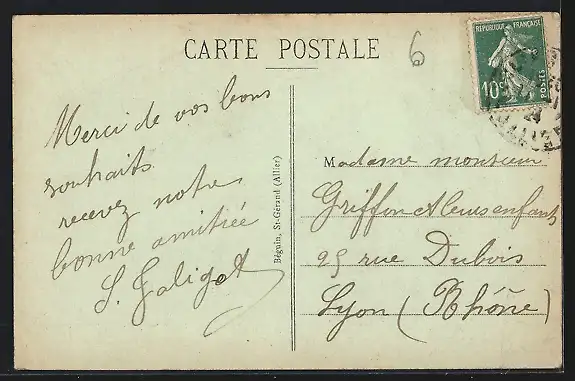 CARTE POSTALE
6
RÉPUBLIQUE FRANÇAISE
10c
POSTES
24
Merci de vos bons
souhaits
recevez notre
bonne amitiée
S. Galigot
Béguin, St-Gérand (Allier)
Madame monsieur
Griffon & leurs enfants
25 rue Dubois
Lyon (Rhône)